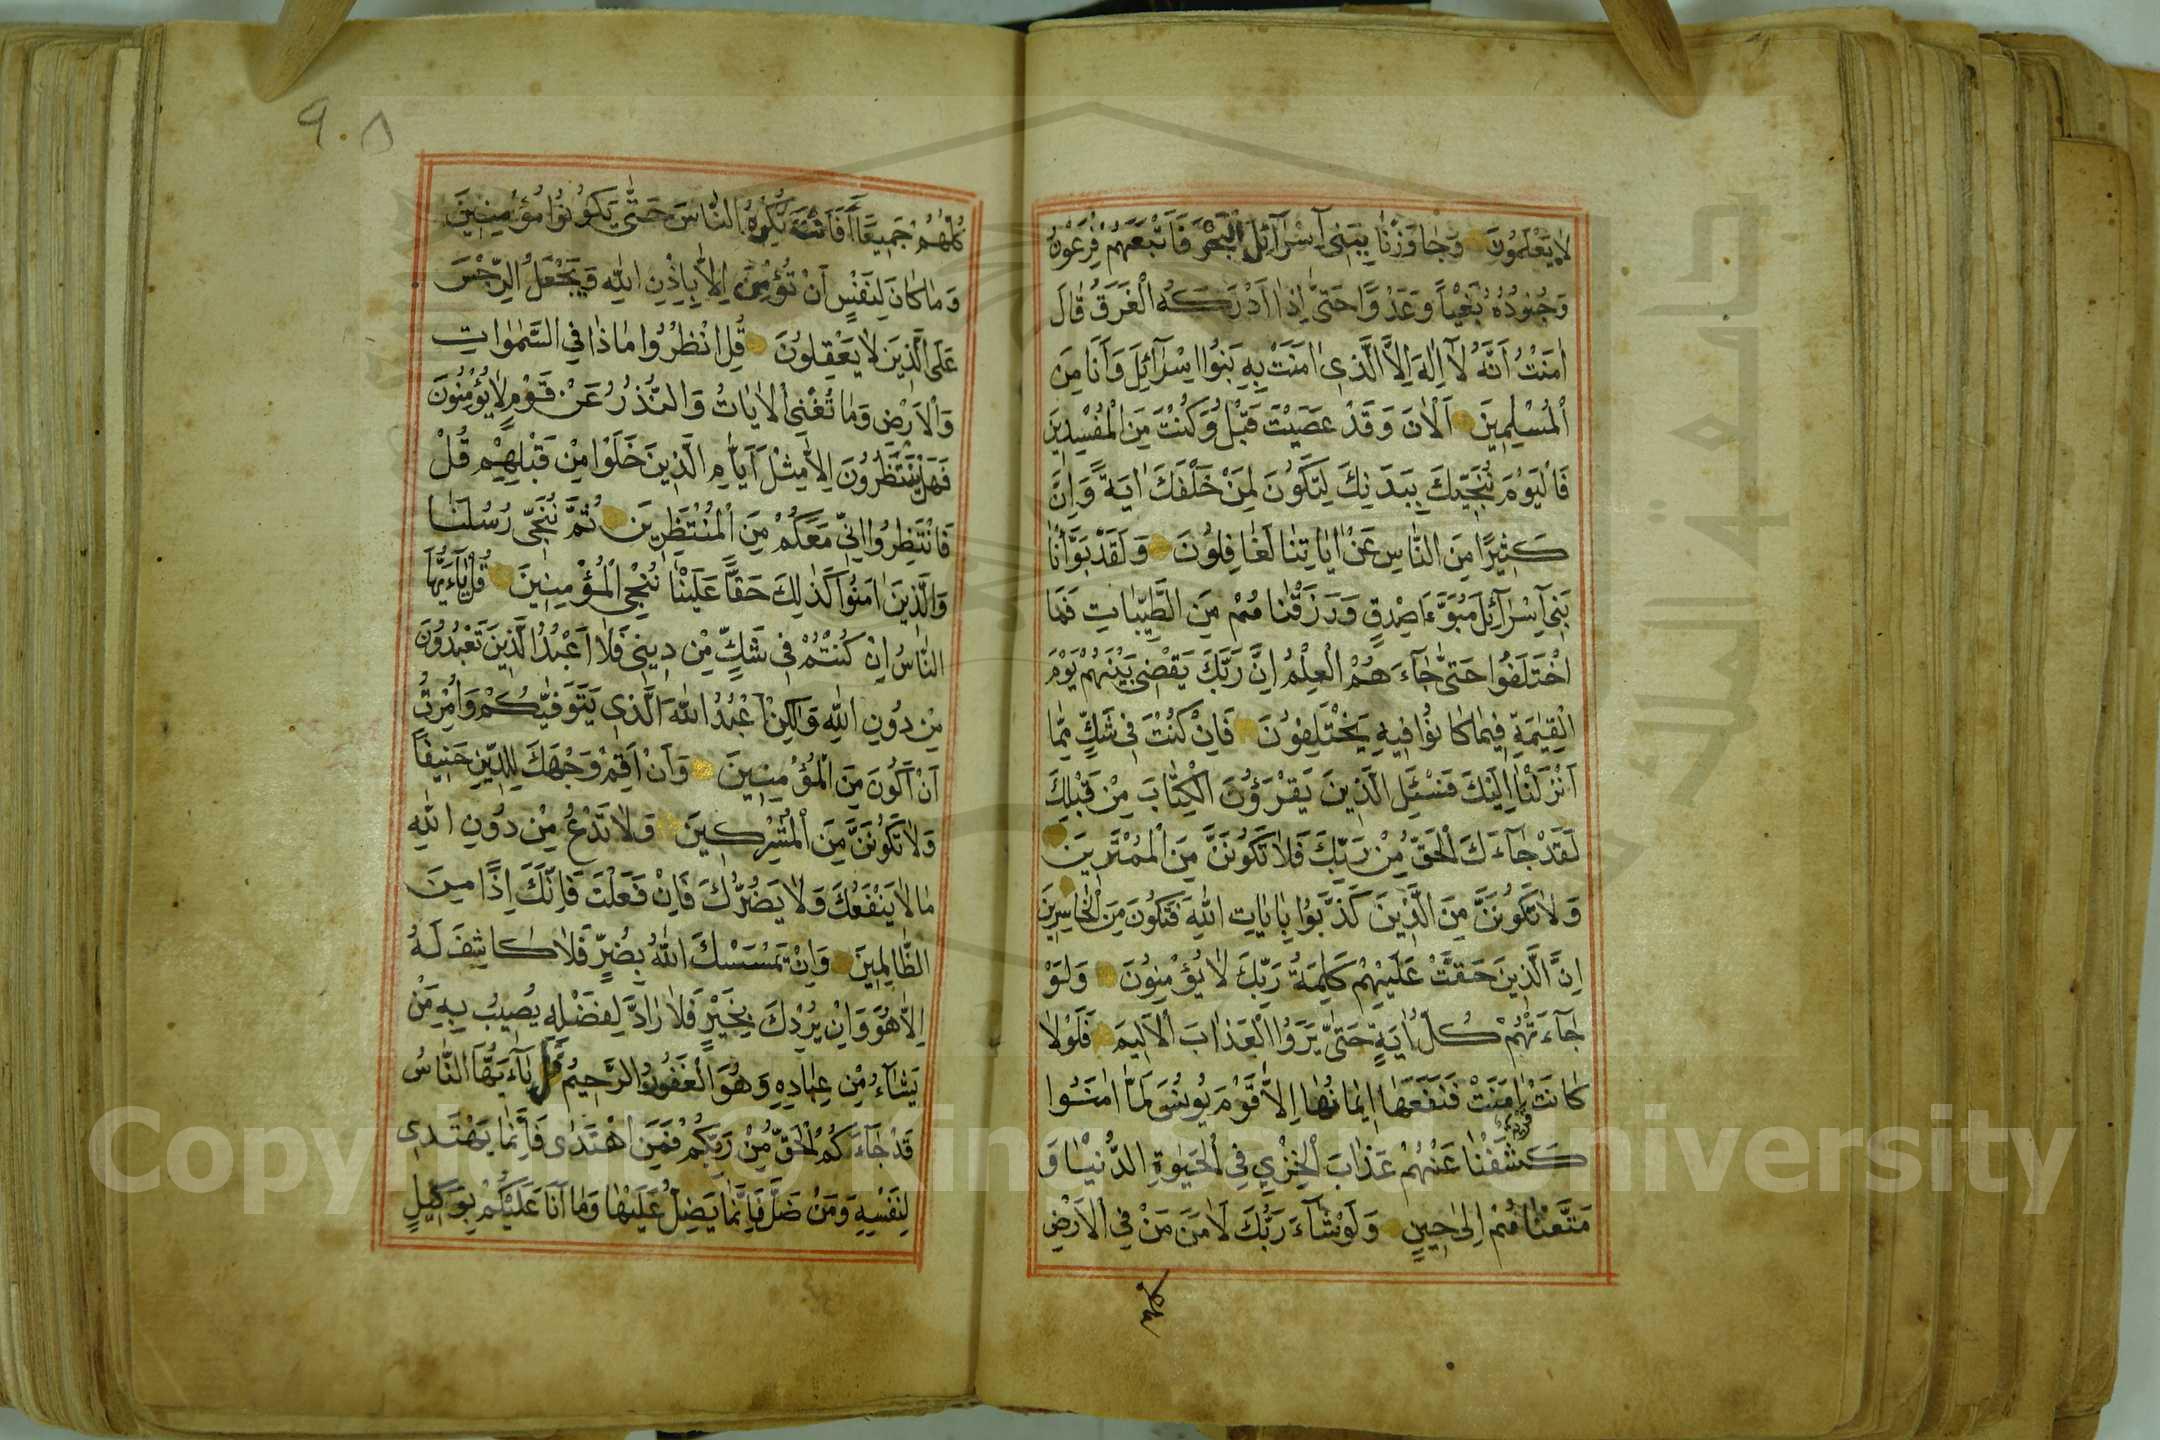 لَا يَعْلَمُونَ وَجَاوَزْنَا بِبَنِي اِسْرَائِلَ الْبَحْرَ فَاَتْبَعَهُمْ فِرْعَوْنُ
وَجُنُودُهُ بَغْيًا وَعَدْوًا حَتَّى اِذَا اَدْرَكَهُ الْغَرَقُ قَالَ
اٰمَنْتُ اَنَّهُ لَا اِلٰهَ اِلَّا الَّذِى اٰمَنَتْ بِهِ بَنُوا اِسْرَائِلَ وَاَنَا مِنَ
الْمُسْلِمِينَ اَلْاٰنَ وَقَدْ عَصَيْتَ قَبْلُ وَكُنْتَ مِنَ الْمُفْسِدِينَ
فَالْيَوْمَ نُنَجِّيكَ بِبَدَنِكَ لِتَكُونَ لِمَنْ خَلْفَكَ اٰيَةً وَاِنَّ
كَثِيرًا مِنَ النَّاسِ عَنْ اٰيَاتِنَا لَغَافِلُونَ وَلَقَدْ بَوَّاْنَا
بَنِي اِسْرَائِلَ مُبَوَّءَ صِدْقٍ وَرَزَقْنَاهُمْ مِنَ الطَّيِّبَاتِ فَمَا
اخْتَلَفُوا حَتَّى جَاءَهُمُ الْعِلْمُ اِنَّ رَبَّكَ يَقْضِى بَيْنَهُمْ يَوْمَ
الْقِيٰمَةِ فِيمَا كَانُوا فِيهِ يَخْتَلِفُونَ فَاِنْ كُنْتَ فِى شَكٍّ مِمَّا
اَنْزَلْنَا اِلَيْكَ فَسْئَلِ الَّذِينَ يَقْرَؤُنَ الْكِتَابَ مِنْ قَبْلِكَ
لَقَدْ جَاءَكَ الْحَقُّ مِنْ رَبِّكَ فَلَا تَكُونَنَّ مِنَ الْمُمْتَرِينَ
وَلَا تَكُونَنَّ مِنَ الَّذِينَ كَذَّبُوا بِاٰيَاتِ اللهِ فَتَكُونَ مِنَ الْخَاسِرِينَ
اِنَّ الَّذِينَ حَقَّتْ عَلَيْهِمْ كَلِمَةُ رَبِّكَ لَا يُؤْمِنُونَ وَلَوْ
جَاءَتْهُمْ كُلُّ اٰيَةٍ حَتَّى يَرَوُا الْعَذَابَ الْاَلِيمَ فَلَوْلَا
كَانَتْ قَرْيَةٌ اٰمَنَتْ فَنَفَعَهَا اِيمَانُهَا اِلَّا قَوْمَ يُونُسَ لَمَّا اٰمَنُوا
كَشَفْنَا عَنْهُمْ عَذَابَ الْخِزْيِ فِي الْحَيٰوةِ الدُّنْيَا وَ
مَتَّعْنَاهُمْ اِلَى حِينٍ وَلَوْ شَاءَ رَبُّكَ لَاٰمَنَ مَنْ فِي الْاَرْضِ
كلهم
٩٠٨
كُلُّهُمْ جَمِيعًا اَفَاَنْتَ تُكْرِهُ النَّاسَ حَتَّى يَكُونُوا مُؤْمِنِينَ
وَمَا كَانَ لِنَفْسٍ اَنْ تُؤْمِنَ اِلَّا بِاِذْنِ اللهِ وَيَجْعَلُ الرِّجْسَ
عَلَى الَّذِينَ لَا يَعْقِلُونَ قُلِ انْظُرُوا مَاذَا فِي السَّمٰوَاتِ
وَالْاَرْضِ وَمَا تُغْنِى الْاٰيَاتُ وَالنُّذُرُ عَنْ قَوْمٍ لَا يُؤْمِنُونَ
فَهَلْ يَنْتَظِرُونَ اِلَّا مِثْلَ اَيَّامِ الَّذِينَ خَلَوْا مِنْ قَبْلِهِمْ قُلْ
فَانْتَظِرُوا اِنِّي مَعَكُمْ مِنَ الْمُنْتَظِرِينَ ثُمَّ نُنَجِّى رُسُلَنَا
وَالَّذِينَ اٰمَنُوا كَذٰلِكَ حَقًّا عَلَيْنَا نُنْجِى الْمُؤْمِنِينَ قُلْ يَاءَيُّهَا
النَّاسُ اِنْ كُنْتُمْ فِى شَكٍّ مِنْ دِينِى فَلَا اَعْبُدُ الَّذِينَ تَعْبُدُونَ
مِنْ دُونِ اللهِ وَلٰكِنْ اَعْبُدُ اللهَ الَّذِى يَتَوَفّٰيكُمْ وَاُمِرْتُ
اَنْ اَكُونَ مِنَ الْمُؤْمِنِينَ وَاَنْ اَقِمْ وَجْهَكَ لِلدِّينِ حَنِيفًا
وَلَا تَكُونَنَّ مِنَ الْمُشْرِكِينَ وَلَا تَدْعُ مِنْ دُونِ اللهِ
مَا لَا يَنْفَعُكَ وَلَا يَضُرُّكَ فَاِنْ فَعَلْتَ فَاِنَّكَ اِذًا مِنَ
الظَّالِمِينَ وَاِنْ يَمْسَسْكَ اللهُ بِضُرٍّ فَلَا كَاشِفَ لَهُ
اِلَّا هُوَ وَاِنْ يُرِدْكَ بِخَيْرٍ فَلَا رَادَّ لِفَضْلِهِ يُصِيبُ بِهِ مَنْ
يَشَاءُ مِنْ عِبَادِهِ وَهُوَ الْغَفُورُ الرَّحِيمُ قُلْ يَاءَيُّهَا النَّاسُ
قَدْ جَاءَكُمُ الْحَقُّ مِنْ رَبِّكُمْ فَمَنِ اهْتَدٰى فَاِنَّمَا يَهْتَدِى
لِنَفْسِهِ وَمَنْ ضَلَّ فَاِنَّمَا يَضِلُّ عَلَيْهَا وَمَا اَنَا عَلَيْكُمْ بِوَكِيلٍ
جامعة الملك سعود
Copyright © King Saud University